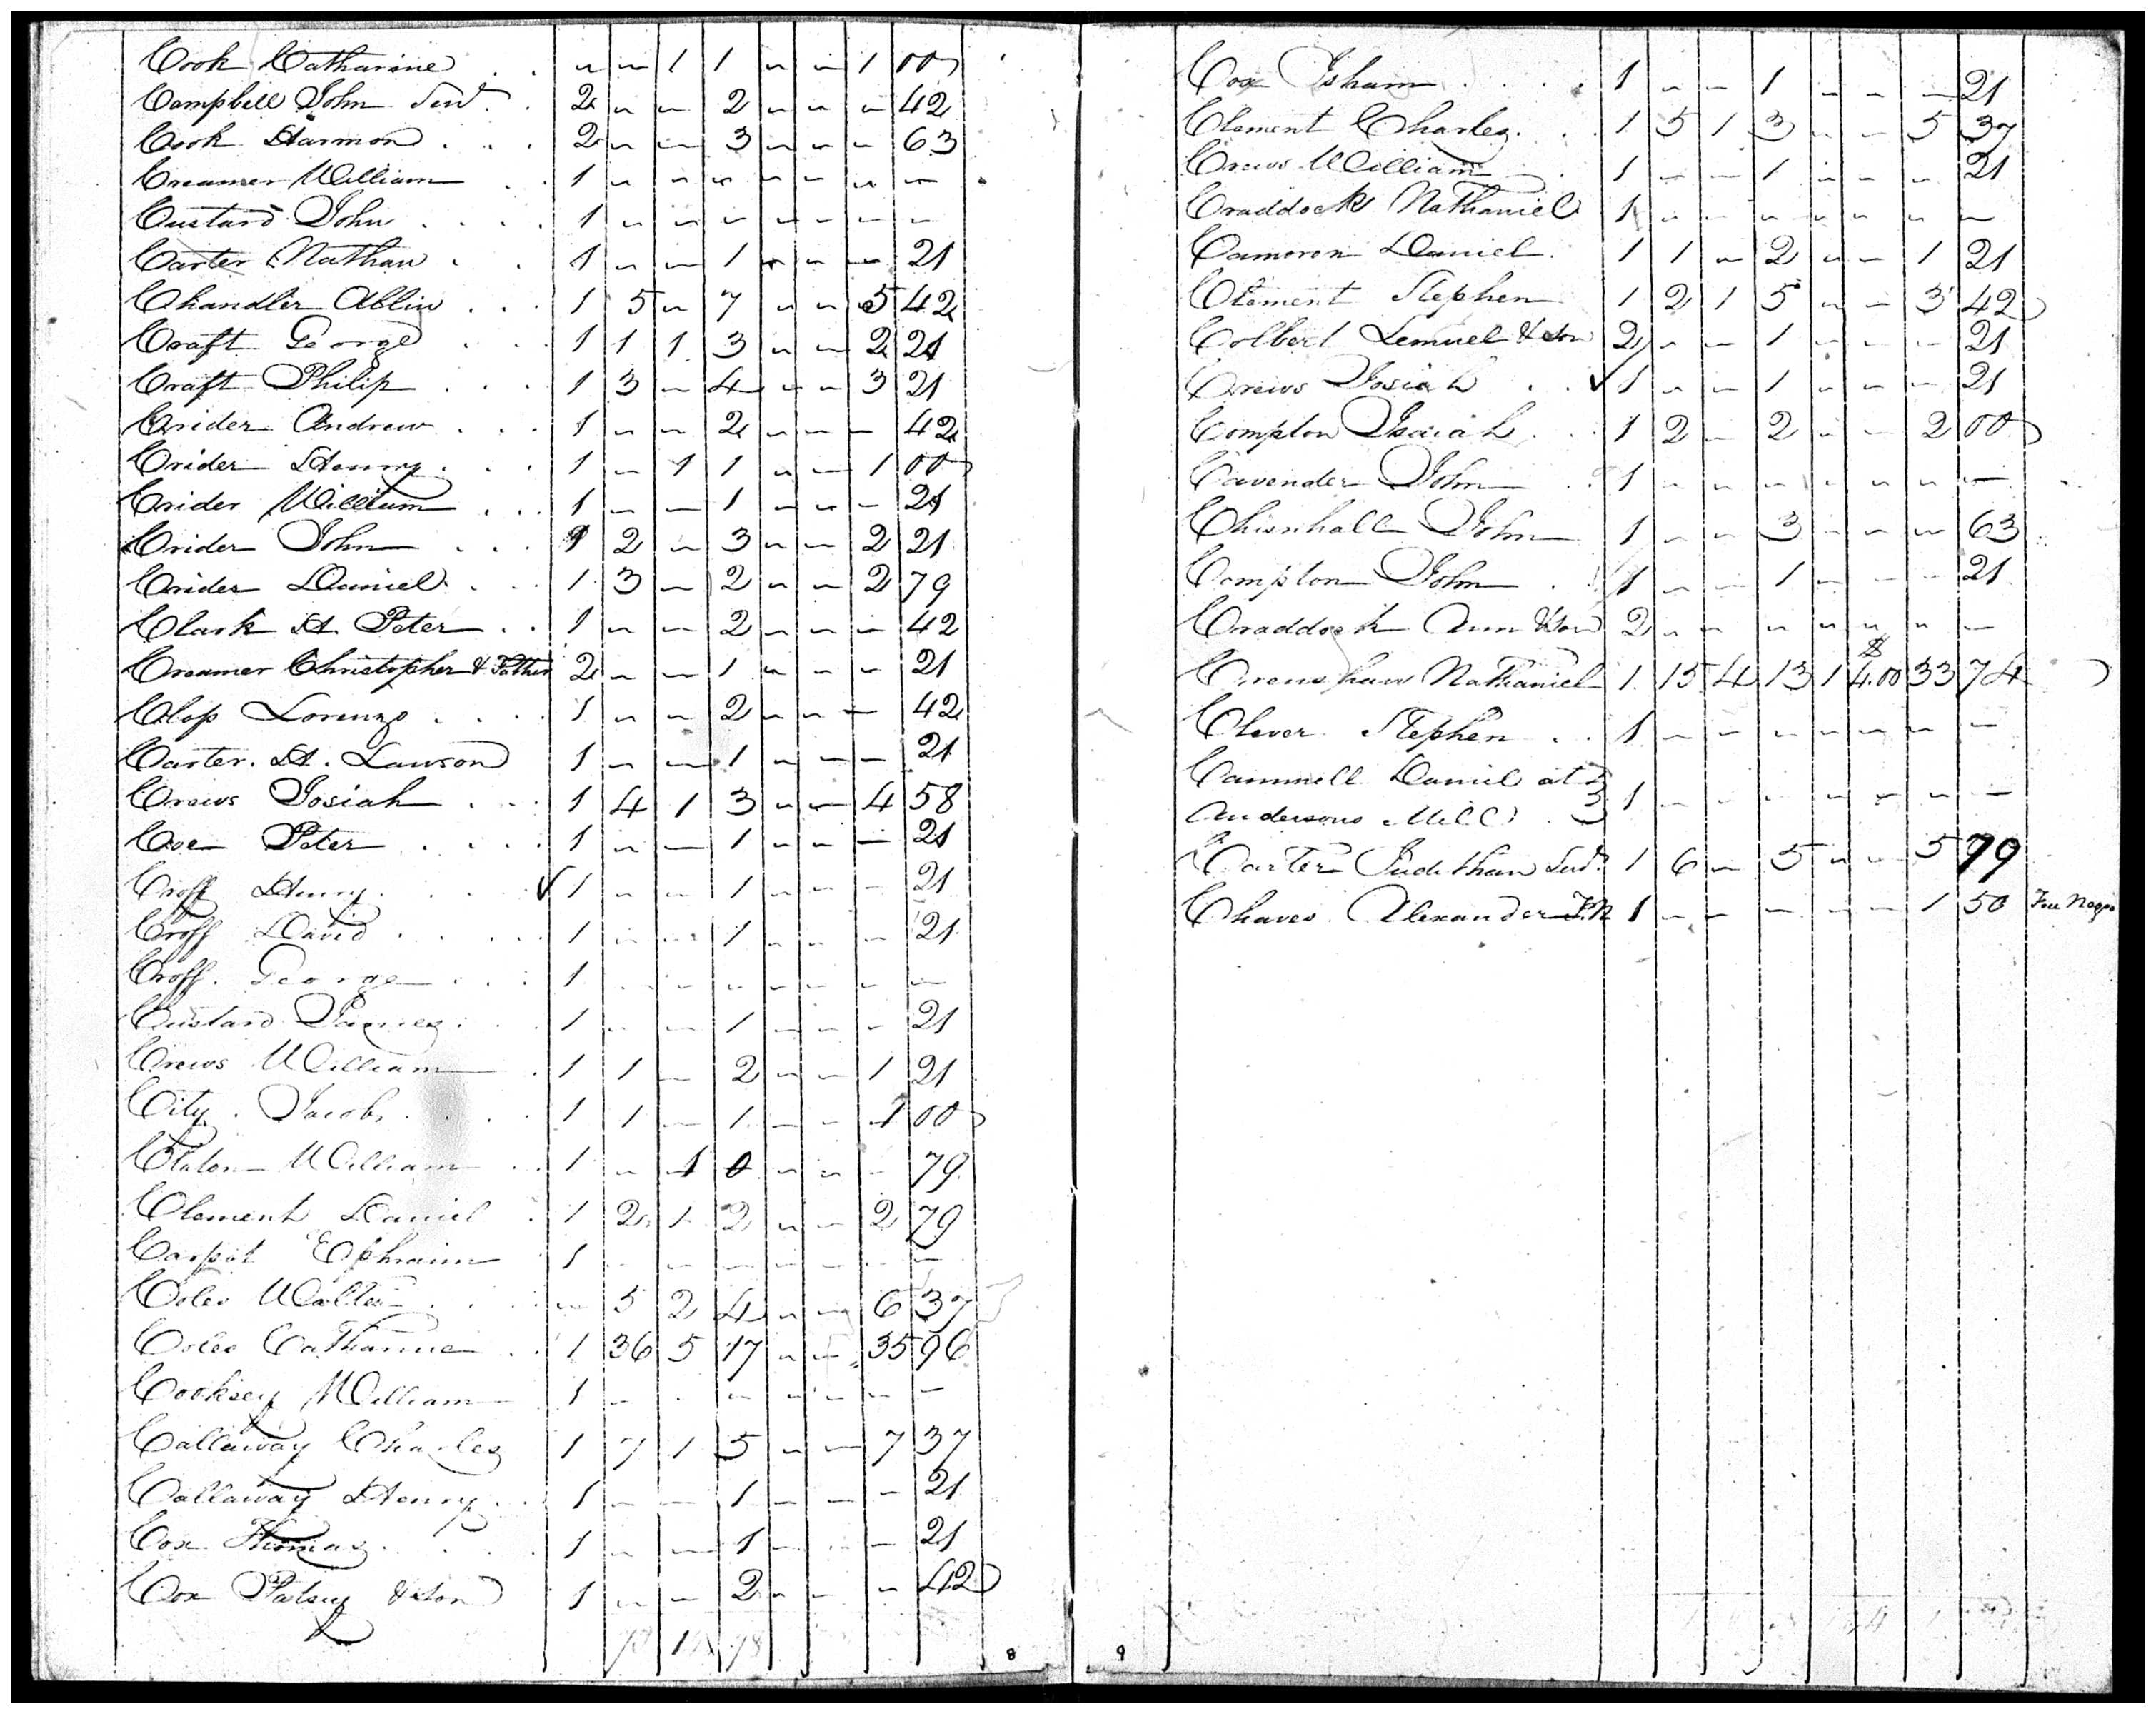 Cook Catharine . . ~ ~ 1 1 ~ ~ 1 00
Campbell John Senr. . 2 ~ ~ 2 ~ ~ ~ 42
Cook Harmon . . . 2 ~ — 3 ~ ~ ~ 63
Creamer William . 1 ~ ~ ~ ~ ~ ~ ~
Custard John . . . . 1 ~ ~ ~ ~ ~ ~ ~
Carter Nathan . . 1 ~ — 1 ~ ~ ~ 21
Chandler Ablin . . . 1 5 ~ 7 ~ ~ 5 42
Craft George . . . 1 1 1 3 ~ ~ 2 21
Craft Philip . . . 1 3 ~ 4 ~ ~ 3 21
Crider Andrew . . . 1 ~ ~ 2 ~ ~ — 42
Crider Henry . . . 1 ~ 1 1 ~ — 1 00
Crider William . . . 1 ~ — 1 ~ ~ ~ 21
Crider John . . . 1 2 ~ 3 ~ — 2 21
Crider Daniel . . 1 3 — 2 ~ ~ 2 79
Clark H. Peter . . 1 ~ — 2 ~ ~ — 42
Creamer Christopher & Father 2 ~ — 1 ~ ~ ~ 21
Clop Lorenzo . . . . 1 ~ ~ 2 ~ ~ — 42
Carter. H. Lawson 1 ~ — 1 ~ — — 21
Crews Josiah . . . 1 4 1 3 ~ ~ 4 58
Coe Peter . . . . 1 ~ — 1 ~ ~ — 21
Croff Henry . . . . ✓ 1 ~ ~ 1 ~ ~ ~ 21
Croff David . . . . . 1 ~ ~ 1 ~ ~ ~ 21
Croff. George . . . 1 . ~ ~ ~ ~ ~ —
Custard James . . . 1 ~ ~ 1 ~ ~ ~ 21
Crews William . 1 1 — 2 ~ ~ 1 21
City. Jacob . . . . 1 1 — 1 ~ ~ 1 00
William . . 1 ~ 1 0 ~ ~ ~ 79
Clement Daniel . 1 2 1 2 ~ ~ 2 79
Ephraim . 1 ~ ~ ~ ~ ~ ~ —
Coles Walter . . . ~ 5 2 4 ~ ~ 6 37
Coles Catharine . . 1 36 5 17 ~ ~ 35 96
Cooksey William 1 ~ . ~ ~ ~ ~ ~
Callaway Charles 1 7 1 5 ~ — 7 37
Callaway Henry . . 1 ~ — 1 ~ — ~ 21
Cox Thomas . . . . 1 ~ — 1 ~ ~ — 21
Cox Patsey & Son 1 ~ ~ 2 ~ ~ ~ 42
8
Cox Isham . . . . 1 ~ ~ 1 ~ ~ — 21
Clement Charles . . 1 5 1 3 ~ ~ 5 37
Crews William . 1 ~ — 1 ~ ~ ~ 21
Craddock Nathaniel 1 ~ ~ ~ ~ ~ ~ —
Cameron Daniel . 1 1 ~ 2 ~ ~ 1 21
Clement Stephen 1 2 1 5 ~ ~ 3 42
Colbert Lemuel & Son 2 ~ ~ 1 ~ ~ ~ 21
Crews Josiah . . ✓ 1 ~ ~ 1 ~ ~ ~ 21
Compton Isaiah . . . 1 2 ~ 2 ~ ~ 2 00
Cavender John . . 1 ~ ~ ~ ~ ~ ~ —
Chisnhall John 1 ~ ~ 3 ~ ~ ~ 63
Compton John . 1 ~ ~ 1 ~ ~ ~ 21
Craddock Ann & Son 2 ~ ~ ~ ~ ~ ~ —
Crenshaw Nathaniel 1 15 4 13 1 $4.00 33 74
Clever Stephen . . 1 — ~ ~ ~ ~ ~ —
Cammell Daniel at }
Andersons Mill . } 1 ~ ~ ~ ~ ~ ~ —
Carter Judithan Senr. 1 6 ~ 5 ~ ~ 5 79
Chaves Alexander F.N 1 — ~ — ~ ~ 1 50 Free Negro
9